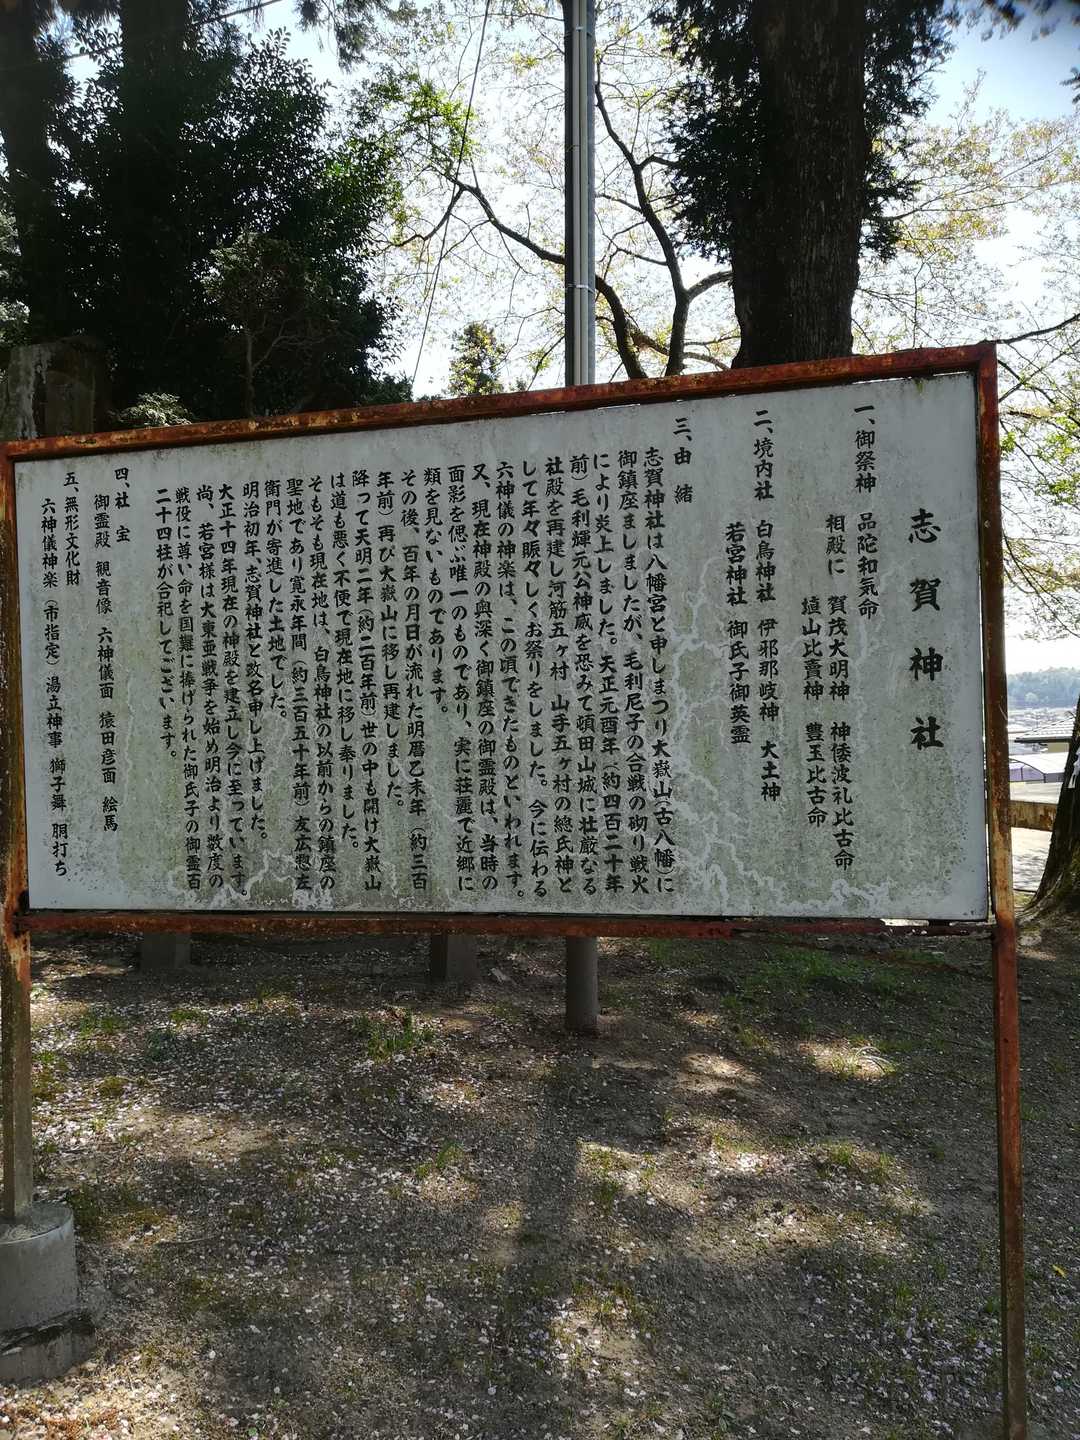 志賀神社
一、御祭神 品陀和気命
相殿に 賀茂大明神 神倭波礼比古命
埴山比賣神 豊玉比古命
二、境内社 白鳥神社 伊邪那岐神 大土神
若宮神社 御氏子御英霊
三、由緒
志賀神社は八幡宮と申しまつり大嶽山(古八幡)に
御鎮座ましましたが、毛利尼子の合戦の砌り戦火
により炎上しました。天正元酉年(約四百二十年
前)毛利輝元公神威を恐みて頓田山城に壮厳なる
社殿を再建し河筋五ヶ村 山手五ヶ村の總氏神と
して年々賑々しくお祭りをしました。今に伝わる
六神儀の神楽は、この頃できたものといわれます。
又、現在神殿の奥深く御鎮座の御霊殿は、当時の
面影を偲ぶ唯一のものであり、実に荘麗で近郷に
類を見ないものであります。
その後、百年の月日が流れた明暦乙未年(約三百
年前)再び大嶽山に移し再建しました。
降って天明二年(約二百年前)世の中も開け大嶽山
は道も悪く不便で現在地に移し奉りました。
そもそも現在地は、白鳥神社の以前からの鎮座の
聖地であり寛永年間(約三百五十年前)友広惣左
衛門が寄進した土地でした。
明治初年、志賀神社と改名申し上げました。
大正十四年現在の神殿を建立し今に至っています。
尚、若宮様は大東亜戦争を始め明治より数度の
戦役に尊い命を国難に捧げられた御氏子の御霊百
二十四柱が合祀してございます。
四、社宝
御霊殿 観音像 六神儀面 猿田彦面 絵馬
五、無形文化財
六神儀神楽(市指定)湯立神事 獅子舞 胴打ち